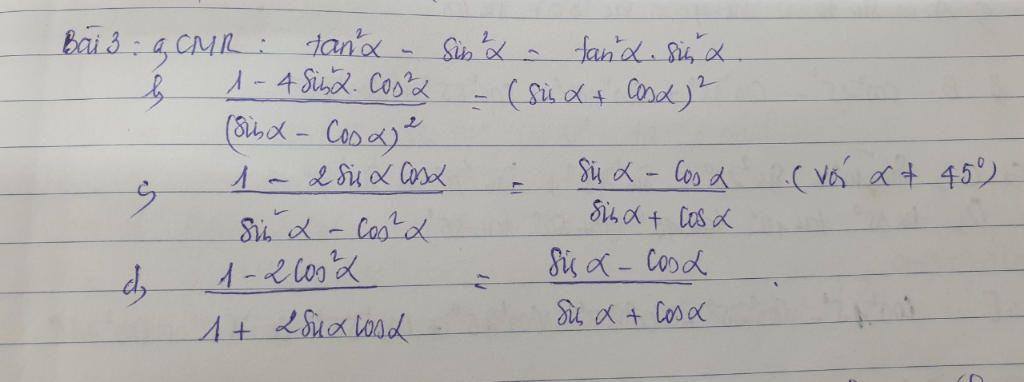 Bài 3: a, CMR: tan²α - sin²α = tan²α . sin²α.
b, (1 - 4sin²α . cos²α) / (sinα - cosα)² = (sinα + cosα)²
c, (1 - 2sinα cosα) / (sin²α - cos²α) = (sinα - cosα) / (sinα + cosα) . (với α ≠ 45°)
d, (1 - 2cos²α) / (1 + 2sinα cosα) = (sinα - cosα) / (sinα + cosα) .